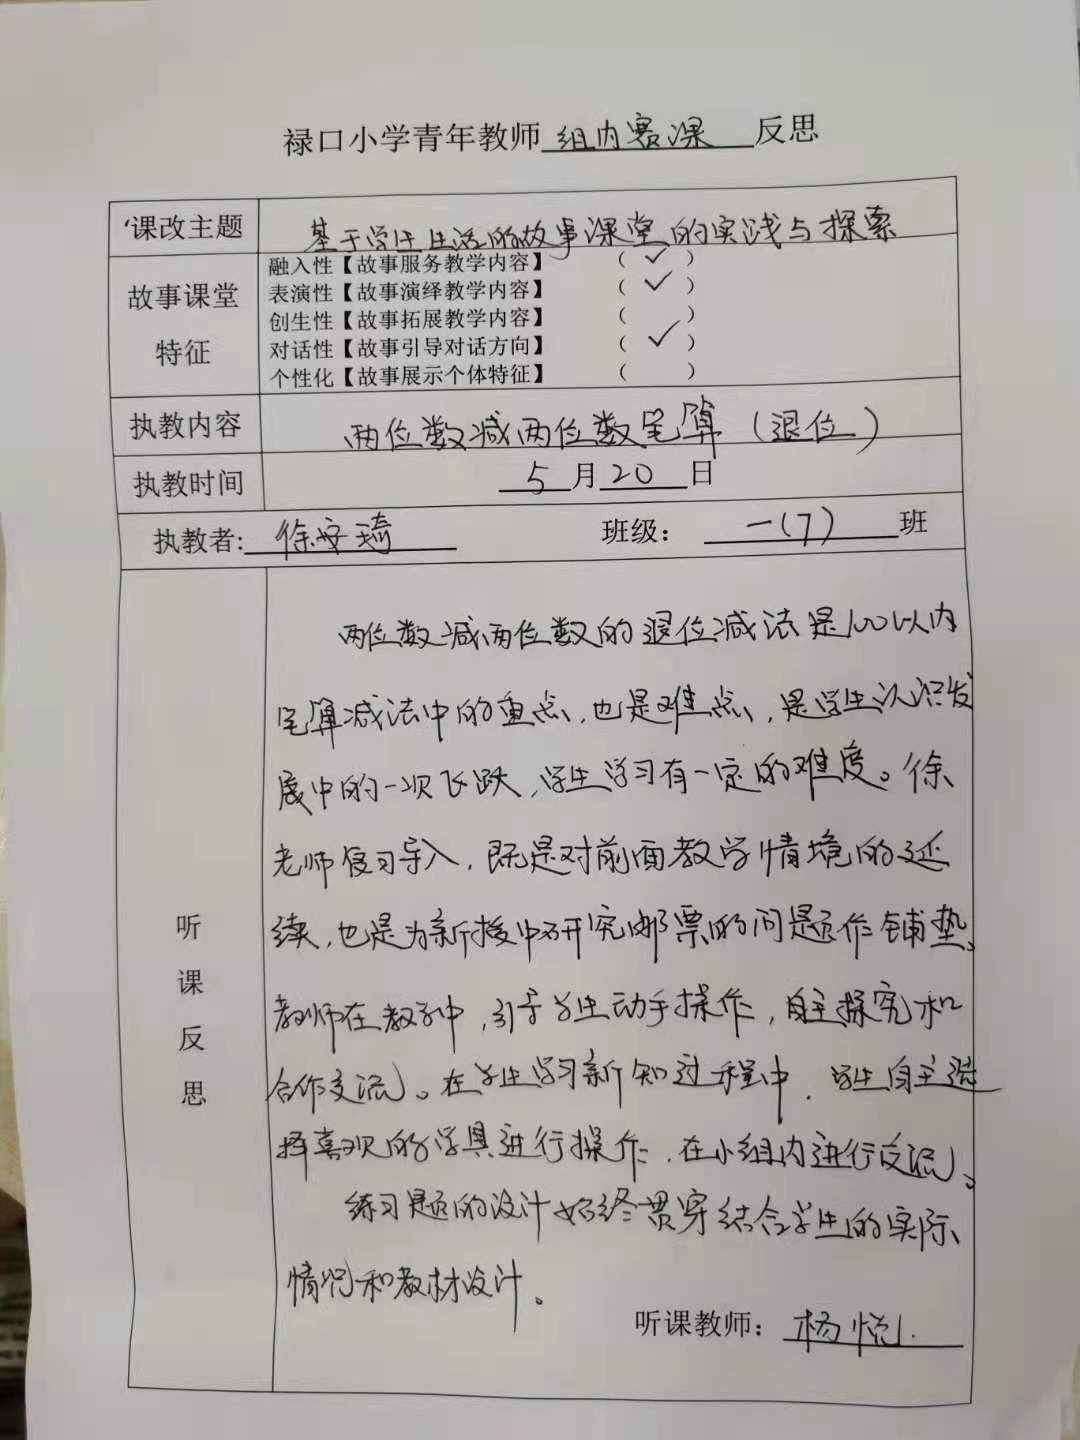 禄口小学青年教师组内赛课反思
课改主题 基于学生生活的故事课堂的实践与探索
故事课堂特征
融入性【故事服务教学内容】 (✓)
表演性【故事演绎教学内容】 (✓)
创生性【故事拓展教学内容】 ( )
对话性【故事引导对话方向】 (✓)
个性化【故事展示个体特征】 ( )
执教内容 两位数减两位数笔算(退位)
执教时间 5月20日
执教者:徐安琦 班级:一(7)班
听课反思
两位数减两位数的退位减法是100以内
笔算减法中的重点,也是难点,是学生认识发
展中的一次飞跃,学生学习有一定的难度。徐
老师复习导入,既是对前面教学情境的延
续,也是为新授中研究邮票的问题作铺垫。
教师在教学中,引导学生动手操作,自主探究和
合作交流。在学生学习新知过程中,学生自主选
择喜欢的学具进行操作,在小组内进行交流。
练习题的设计始终贯穿结合学生的实际
情况和教材设计。
听课教师:杨悦